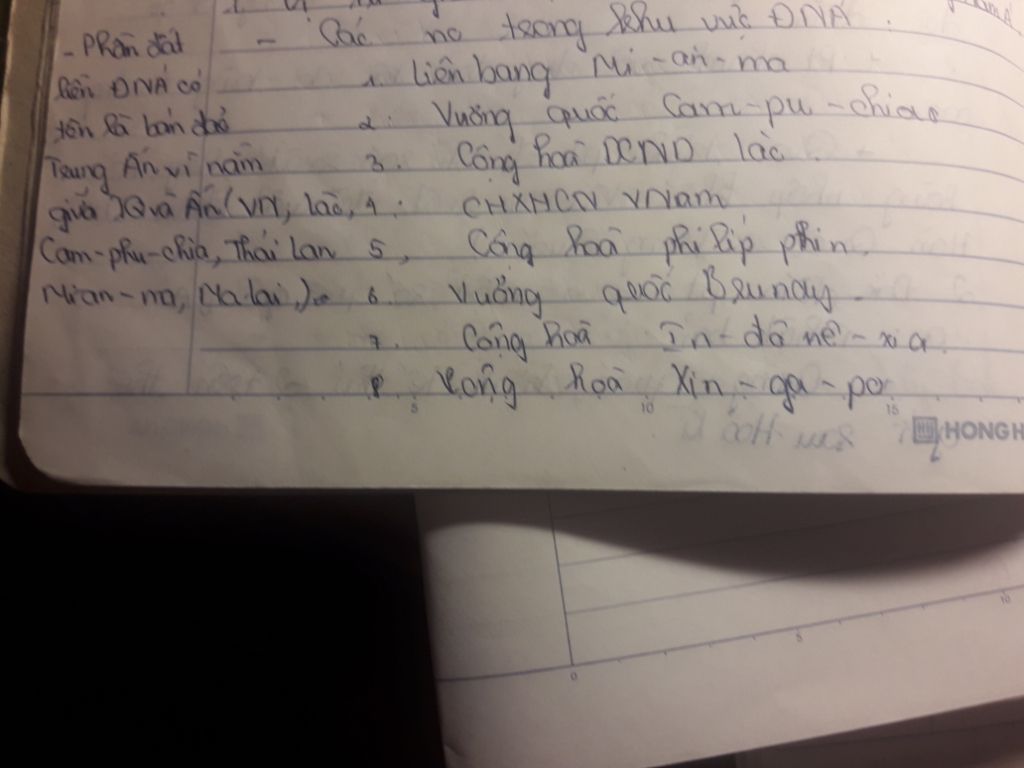 - Các nc trong khu vực ĐNA.
1. Liên bang Mi-an-ma
2. Vương quốc Cam-pu-chia
3. Cộng hoà DCND Lào.
4. CHXHCN VNam
5, Cộng hoà phi líp phin.
6. Vương quốc Brunây.
7. Cộng hoà In-đô nê-xi a.
8 Cộng hoà Xin-ga-po.
- Phần đất
liền ĐNÁ có
tên là bán đảo
Trung Ấn vì nằm
giữa TQ và Ấn (VN, Lào,
Cam-phu-chia, Thái Lan
Mian-ma, Malai).
5
10
15
HONGH
0
5
10